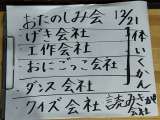 おたのしみ会 12/21
げき会社
工作会社
おにごっこ会社
ダンス会社
クイズ会社
体いくかん
読みきかせ会社